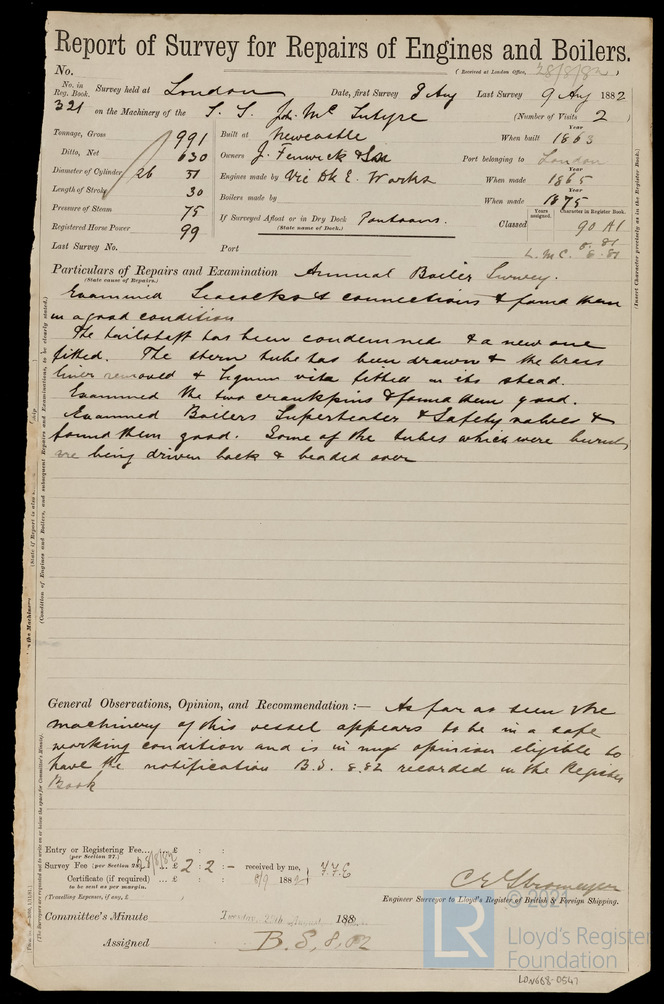 Report of Survey for Repairs of Engines and Boilers.
No.
(Received at London Office, 28/8/82)
No. in Reg. Book. Survey held at London Date, first Survey 8 Aug Last Survey 9 Aug 1882
321 on the Machinery of the S. S. Jn. Mc Intyre (Number of Visits 2)
Tonnage, Gross 991 Built at Newcastle When built Year 1863
Ditto, Net 630 Owners J. Fenwick & Son Port belonging to London
Diameter of Cylinder 26 51 Engines made by Vic Dk E. Works When made Year 1865
Length of Stroke 30 Boilers made by When made Year 1875
Pressure of Steam 75 If Surveyed Afloat or in Dry Dock Pontoons.
(State name of Dock.)
Years assigned. Character in Register Book.
Registered Horse Power 99 Classed 90 A1
8.81
Last Survey No. Port L. M. C. 8.81
Particulars of Repairs and Examination Annual Boiler Survey.
(State cause of Repairs.)
Examined Seacocks & connections & found them
in a good condition
The tailshaft has been condemned & a new one
fitted. The stern tube has been drawn & the brass
liner removed & lignum vitae fitted in its stead.
Examined the two crankpins & found them good.
Examined Boilers Superheater & Safety valves &
found them good. Some of the tubes which were burnt
are being driven back & beaded over
General Observations, Opinion, and Recommendation :— As far as seen the
machinery of this vessel appears to be in a safe
working condition and is in my opinion eligible to
have the notification B.S. 8.82 recorded in the Register
Book
Entry or Registering Fee.... £ : :
(per Section 27.)
Survey Fee (per Section 28) 28/8/82 £ 2 : 2 : - received by me,
Certificate (if required) ... £ : : 8/9 1882
to be sent as per margin.
(Travelling Expenses, if any, £ )
C E Stromeyer
Engineer Surveyor to Lloyd's Register of British & Foreign Shipping.
Committee's Minute 188
Assigned B.S, 8,82
(Insert Character precisely as in the Register Book.)
(Condition of Engines and Boilers, and subsequent Repairs and Examinations, to be clearly stated.)
(The Surveyors are requested not to write on or below the space for Committee's Minute.)
© 2021
LR
Lloyd's Register
Foundation
LON668-0547